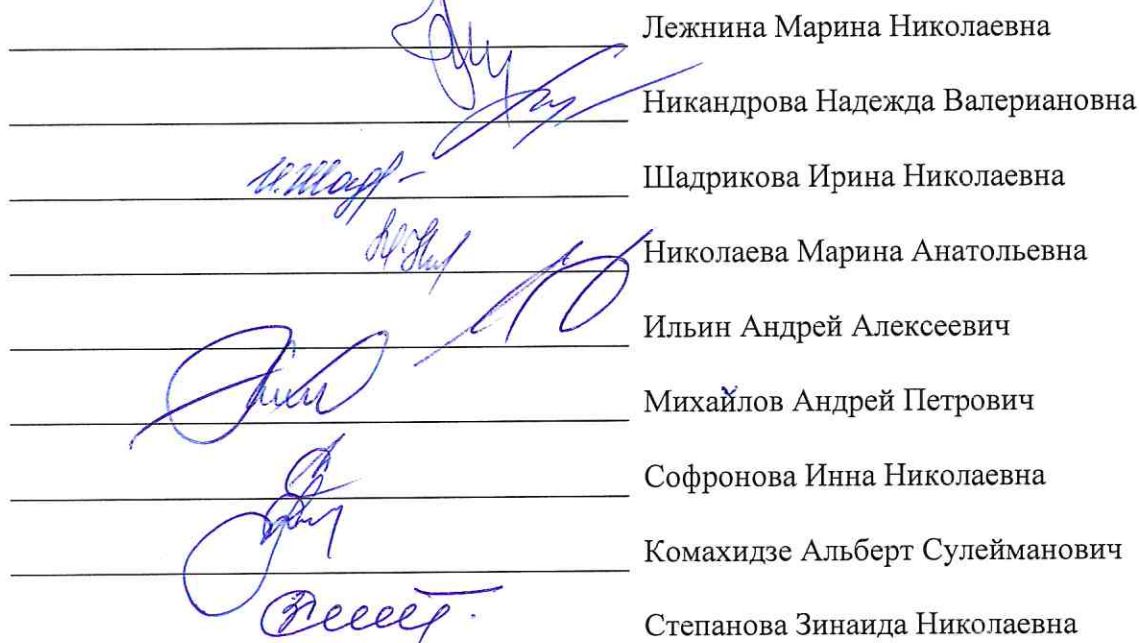 Лежнина Марина Николаевна
Никандрова Надежда Валериановна
Шадрикова Ирина Николаевна
Николаева Марина Анатольевна
Ильин Андрей Алексеевич
Михайлов Андрей Петрович
Софронова Инна Николаевна
Комахидзе Альберт Сулейманович
Степанова Зинаида Николаевна